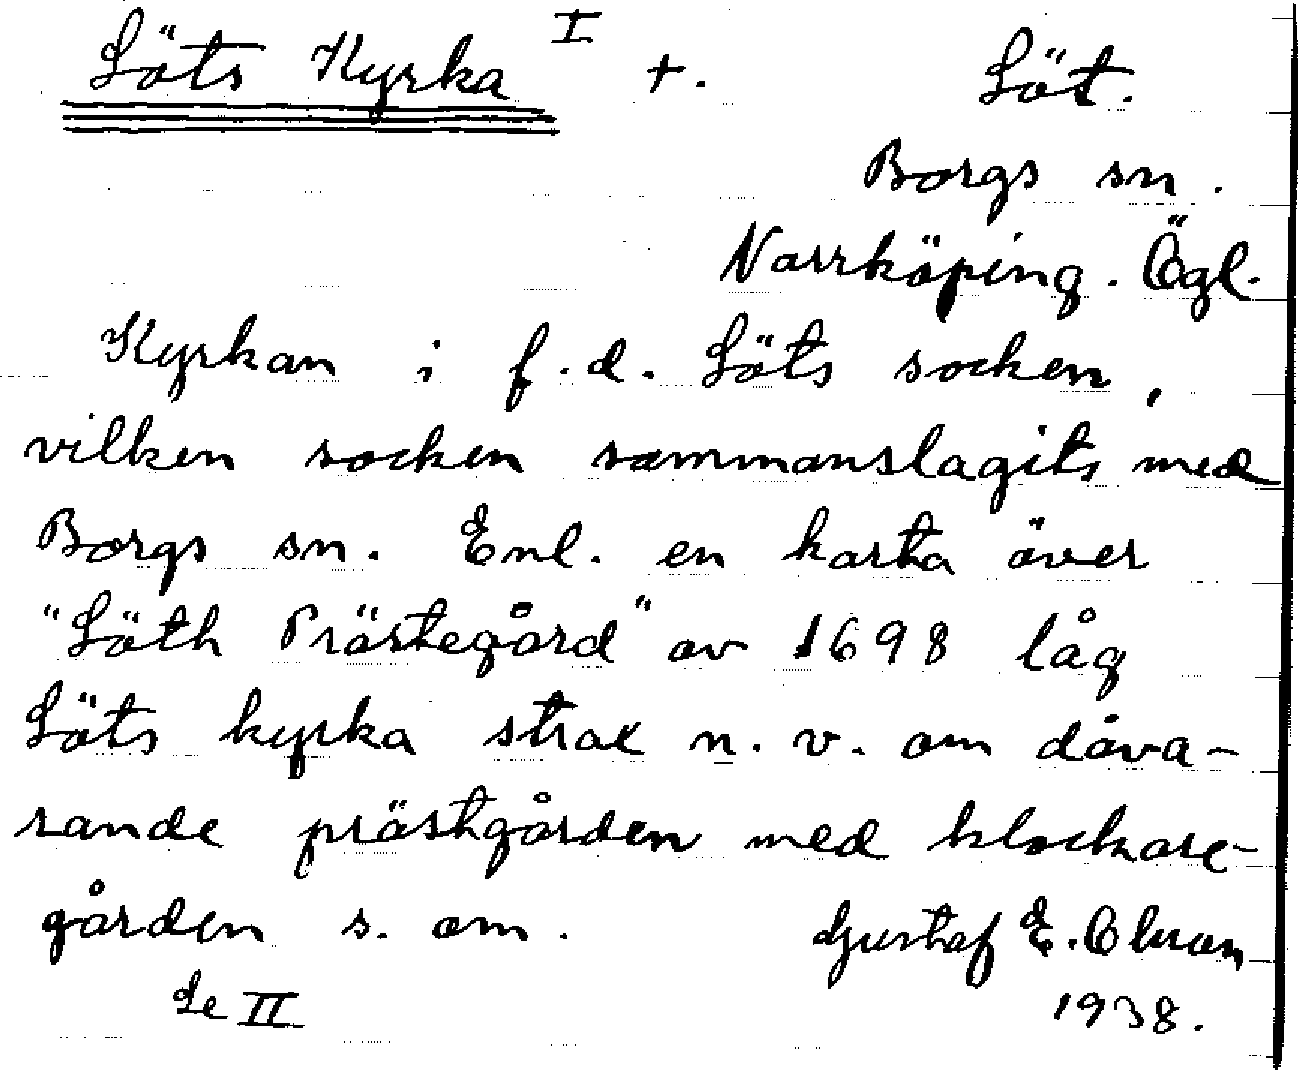 Löts Kyrka I +. Löt.
Borgs sn.
Norrköping. Ögl.
Kyrkan i f.d. Löts socken,
vilken socken sammanslagits med
Borgs sn. Enl. en karta över
"Löth Prästegård" av 1698 låg
Löts kyrka strax n. v. om dåva-
rande prästgården med klockare-
gården s. om. Gustaf E. Olsson
Se II 1938.